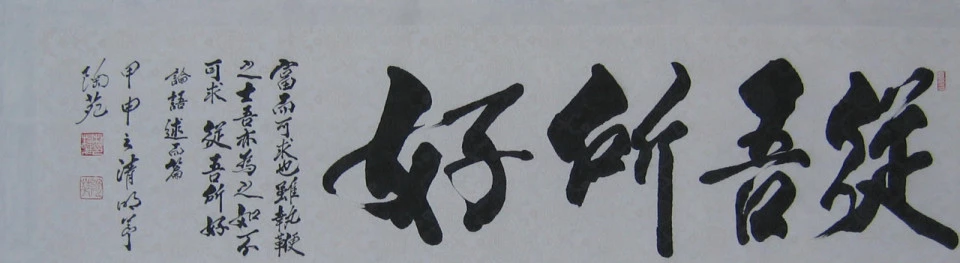 從吾所好
富而可求也雖執鞭
之士吾亦為之如不
可求 從吾所好
論語述而篇
甲申之清明節
陶苑